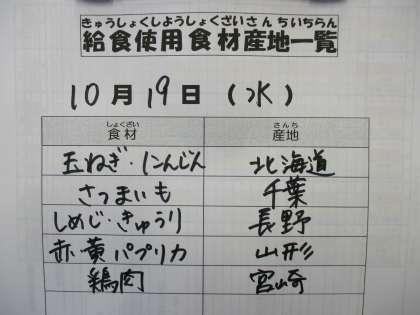 きゅうしょくしようしょくざいさんちいちらん
給食使用食材産地一覧
10月19日(水)
しょくざい さんち
食材 産地
玉ねぎ・にんじん 北海道
さつまいも 千葉
しめじ・きゅうり 長野
赤黄パプリカ 山形
鶏肉 宮崎